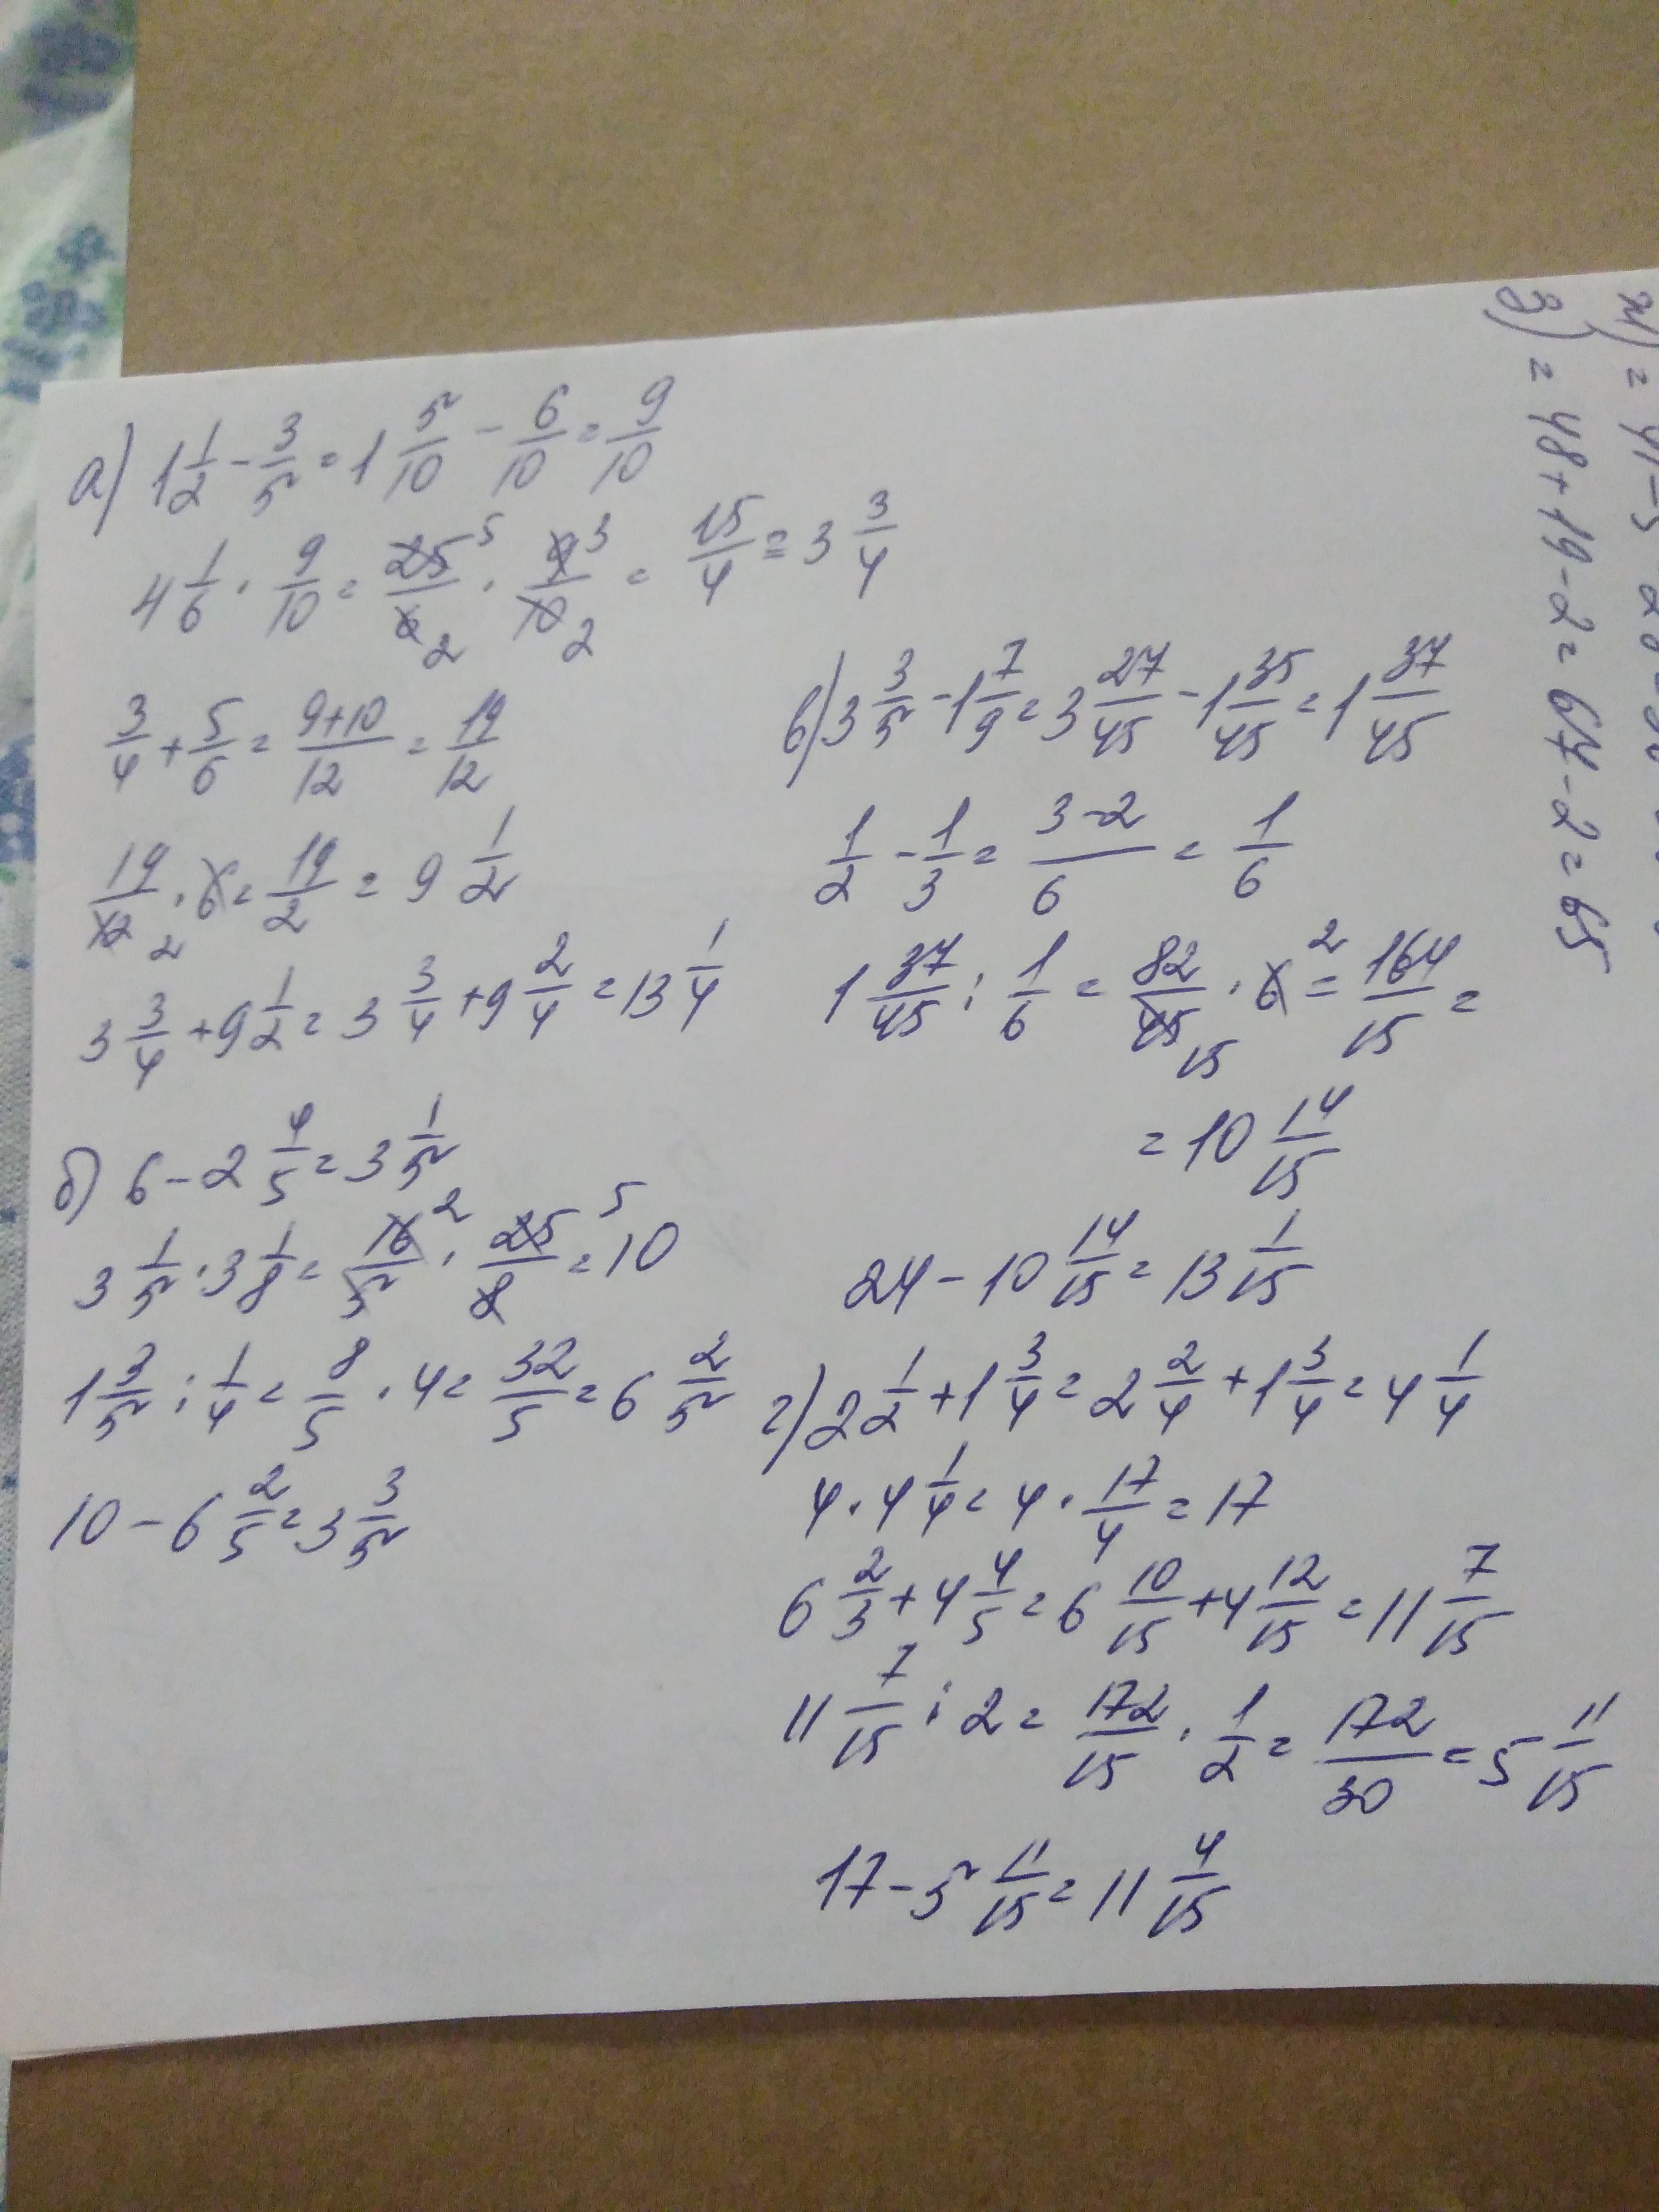 а) 1 1/2 - 3/5 = 1 5/10 - 6/10 = 9/10
4 1/6 · 9/10 = 25/6 · 9/10 = 15/4 = 3 3/4
5 3
2 2
3/4 + 5/6 = (9+10)/12 = 19/12
19/12 · 6 = 19/2 = 9 1/2
2
3 3/4 + 9 1/2 = 3 3/4 + 9 2/4 = 13 1/4
б) 6 - 2 4/5 = 3 1/5
3 1/5 · 3 1/8 = 16/5 · 25/8 = 10
2 5
1 3/5 : 1/4 = 8/5 · 4 = 32/5 = 6 2/5
10 - 6 2/5 = 3 3/5
в) 3 3/5 - 1 7/9 = 3 27/45 - 1 35/45 = 1 37/45
1/2 - 1/3 = (3-2)/6 = 1/6
1 37/45 : 1/6 = 82/45 · 6 = 164/15 =
2
15
= 10 14/15
24 - 10 14/15 = 13 1/15
г) 2 1/2 + 1 3/4 = 2 2/4 + 1 3/4 = 4 1/4
4 · 4 1/4 = 4 · 17/4 = 17
6 2/3 + 4 4/5 = 6 10/15 + 4 12/15 = 11 7/15
11 7/15 : 2 = 172/15 · 1/2 = 172/30 = 5 11/15
17 - 5 11/15 = 11 4/15
з) = 48 + 19 - 2 = 67 - 2 = 65